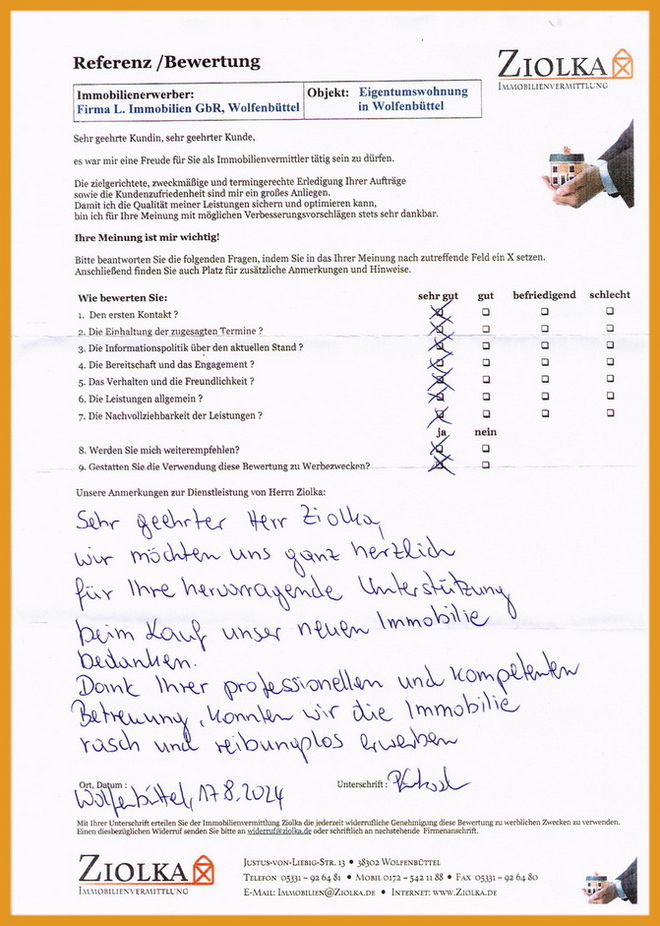 Referenz /Bewertung
ZIOLKA
IMMOBILIENVERMITTLUNG
Immobilienerwerber:
Firma L. Immobilien GbR, Wolfenbüttel
Objekt: Eigentumswohnung
in Wolfenbüttel
Sehr geehrte Kundin, sehr geehrter Kunde,
es war mir eine Freude für Sie als Immobilienvermittler tätig sein zu dürfen.
Die zielgerichtete, zweckmäßige und termingerechte Erledigung Ihrer Aufträge
sowie die Kundenzufriedenheit sind mir ein großes Anliegen.
Damit ich die Qualität meiner Leistungen sichern und optimieren kann,
bin ich für Ihre Meinung mit möglichen Verbesserungsvorschlägen stets sehr dankbar.
Ihre Meinung ist mir wichtig!
Bitte beantworten Sie die folgenden Fragen, indem Sie in das Ihrer Meinung nach zutreffende Feld ein X setzen.
Anschließend finden Sie auch Platz für zusätzliche Anmerkungen und Hinweise.
Wie bewerten Sie: sehr gut gut befriedigend schlecht
1. Den ersten Kontakt ?
2. Die Einhaltung der zugesagten Termine ?
3. Die Informationspolitik über den aktuellen Stand ?
4. Die Bereitschaft und das Engagement ?
5. Das Verhalten und die Freundlichkeit ?
6. Die Leistungen allgemein ?
7. Die Nachvollziehbarkeit der Leistungen ?
ja nein
8. Werden Sie mich weiterempfehlen?
9. Gestatten Sie die Verwendung diese Bewertung zu Werbezwecken?
Unsere Anmerkungen zur Dienstleistung von Herrn Ziolka:
Sehr geehrter Herr Ziolka,
wir möchten uns ganz herzlich
für Ihre hervorragende Unterstützung
beim Kauf unser neuen Immobilie
bedanken.
Dank Ihrer professionellen und kompetenten
Betreuung, konnten wir die Immobilie
rasch und reibungslos erwerben
Ort, Datum : Unterschrift :
Wolfenbüttel, 17.8.2024
Mit Ihrer Unterschrift erteilen Sie der Immobilienvermittlung Ziolka die jederzeit widerrufliche Genehmigung diese Bewertung zu werblichen Zwecken zu verwenden.
Einen diesbezüglichen Widerruf senden Sie bitte an widerruf@ziolka.de oder schriftlich an nachstehende Firmenanschrift.
ZIOLKA
IMMOBILIENVERMITTLUNG
JUSTUS-VON-LIEBIG-STR. 13 • 38302 WOLFENBÜTTEL
TELEFON 05331 – 92 64 81 • MOBIL 0172 – 542 11 88 • FAX 05331 – 92 64 80
E-MAIL: IMMOBILIEN@ZIOLKA.DE • INTERNET: WWW.ZIOLKA.DE